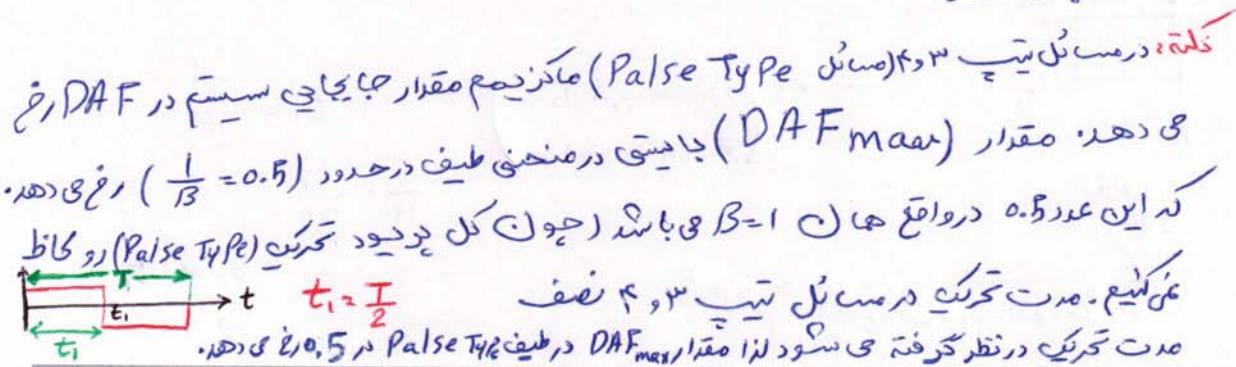 نکته: در مسائل تیپ ۳ و ۴ (مسائل Palse Type) ماکزیمم مقدار جابجایی سیستم در DAF رخ
می دهد. مقدار (DAF maax) بایستی در منحنی طیف در حدود (1/β = 0.5) رخ می دهد.
که این عدد 0.5 در واقع همان β=1 می باشد (چون کل پریود تحریک (Palse Type) رو لحاظ
نمی کنیم. مدت تحریک در مسائل تیپ ۳ و ۴ نصف
T t₁ t t₁ t₁ = T/2
مدت تحریک در نظر گرفته می شود لذا مقدار DAFmax در طیف Palse Type در 0.5 رخ می دهد.